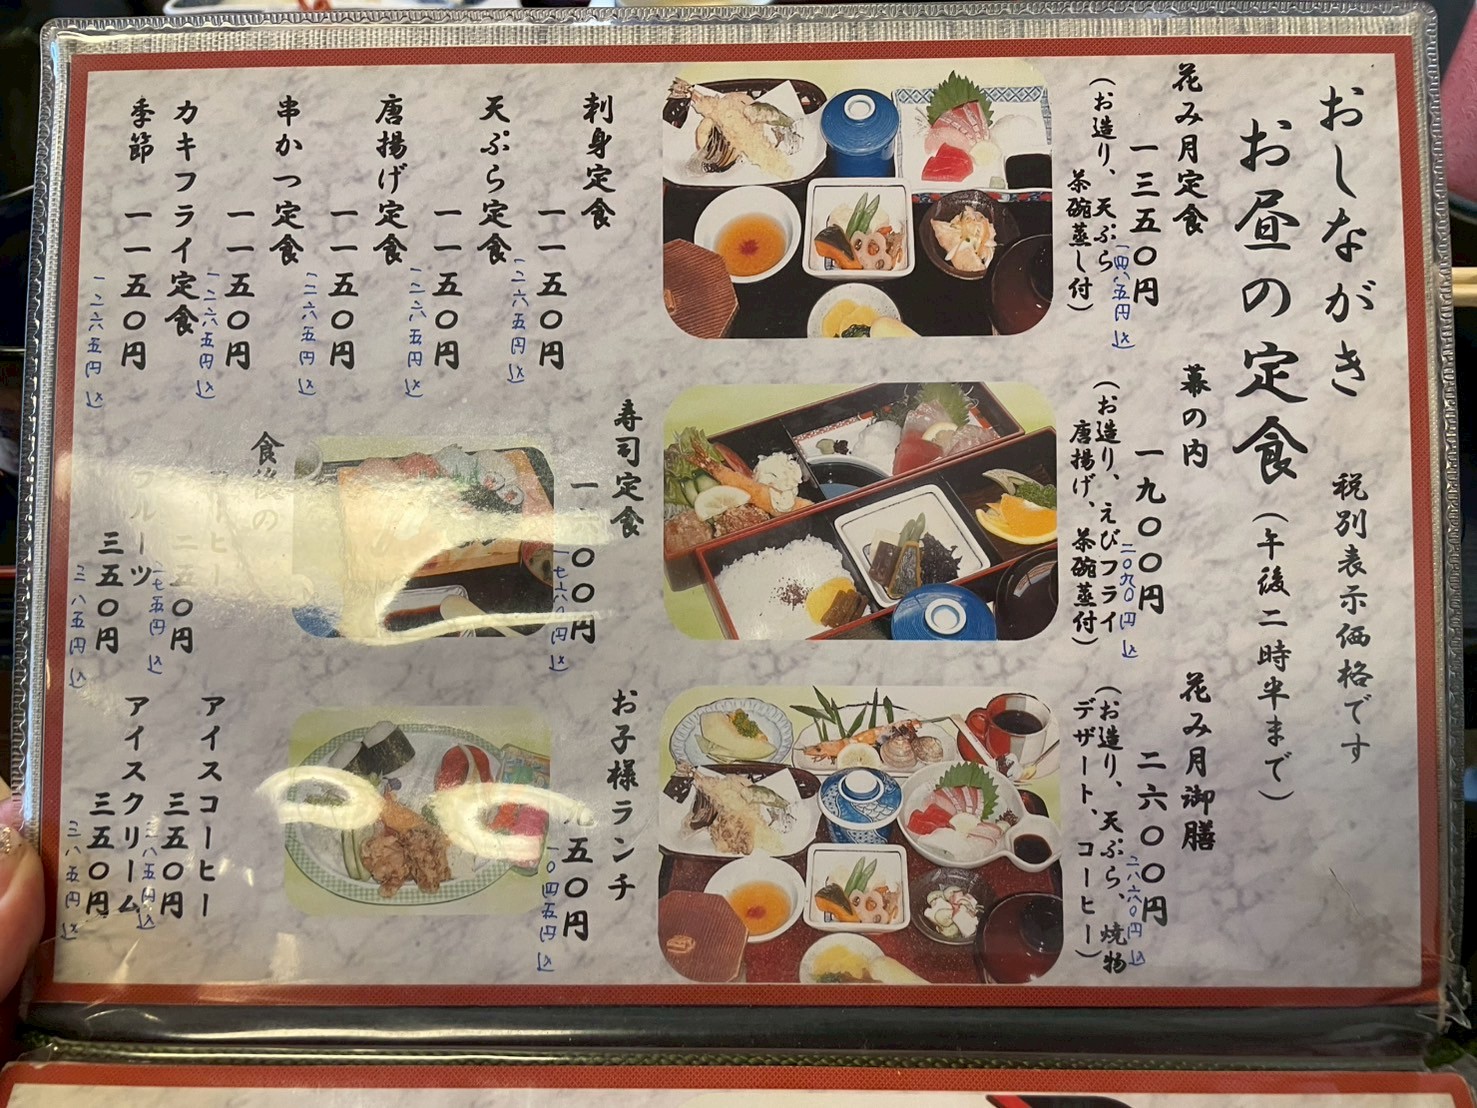 おしながき
税別表示価格です
お昼の定食
(午後二時半まで)
花み月定食
一三五〇円
一四八五円込
(お造り、天ぷら
茶碗蒸し付)
幕の内
一九〇〇円
二〇九〇円込
(お造り、えびフライ
唐揚げ、茶碗蒸付)
花み月御膳
二六〇〇円
二八六〇円込
(お造り、天ぷら、焼物
デザート、コーヒー)
刺身定食
一一五〇円
一二六五円込
天ぷら定食
一一五〇円
一二六五円込
唐揚げ定食
一一五〇円
一二六五円込
串かつ定食
一一五〇円
一二六五円込
カキフライ定食
季節
一一五〇円
一二六五円込
寿司定食
一七六〇円込
お子様ランチ
五〇円
一〇四五円込
食後の
コーヒー
二五〇円
二七五円込
フルーツ
三五〇円
三八五円込
アイスコーヒー
三五〇円
三八五円込
アイスクリーム
三五〇円
三八五円込